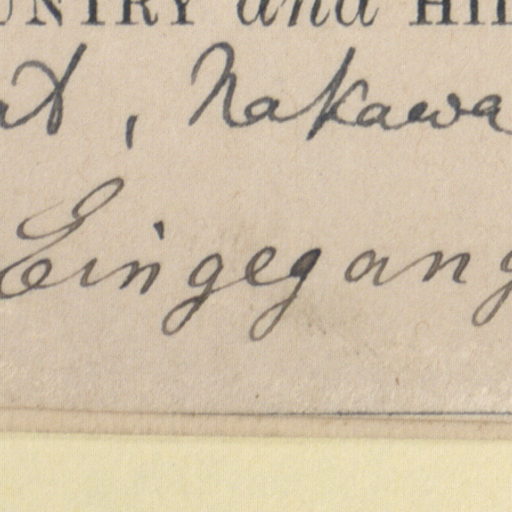 UNTRY and HI
at, Nakawa
Eingegang